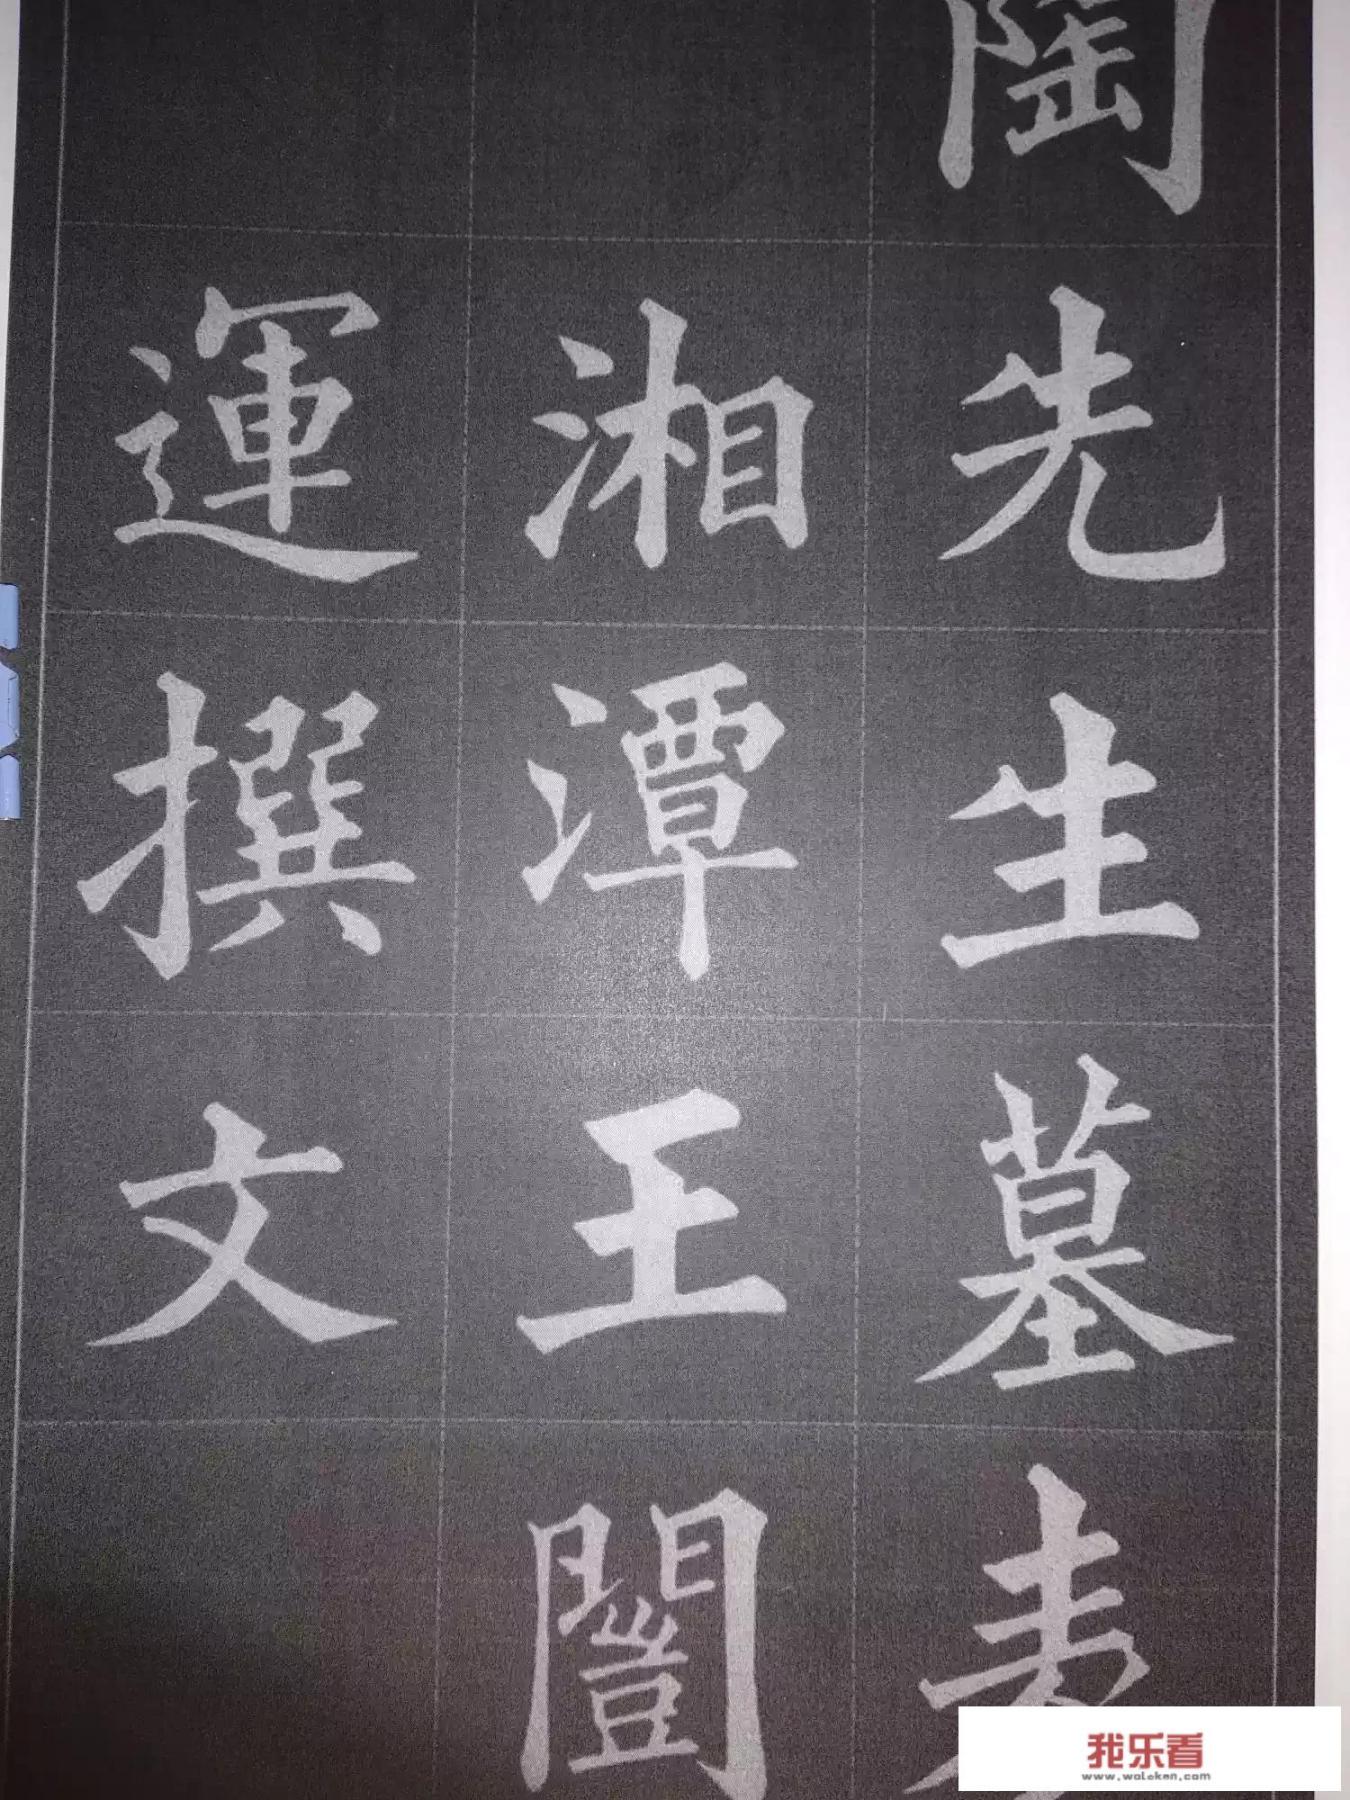 陶先生墓表
湘潭王闓
運撰文
我乐看
www.woleken.com